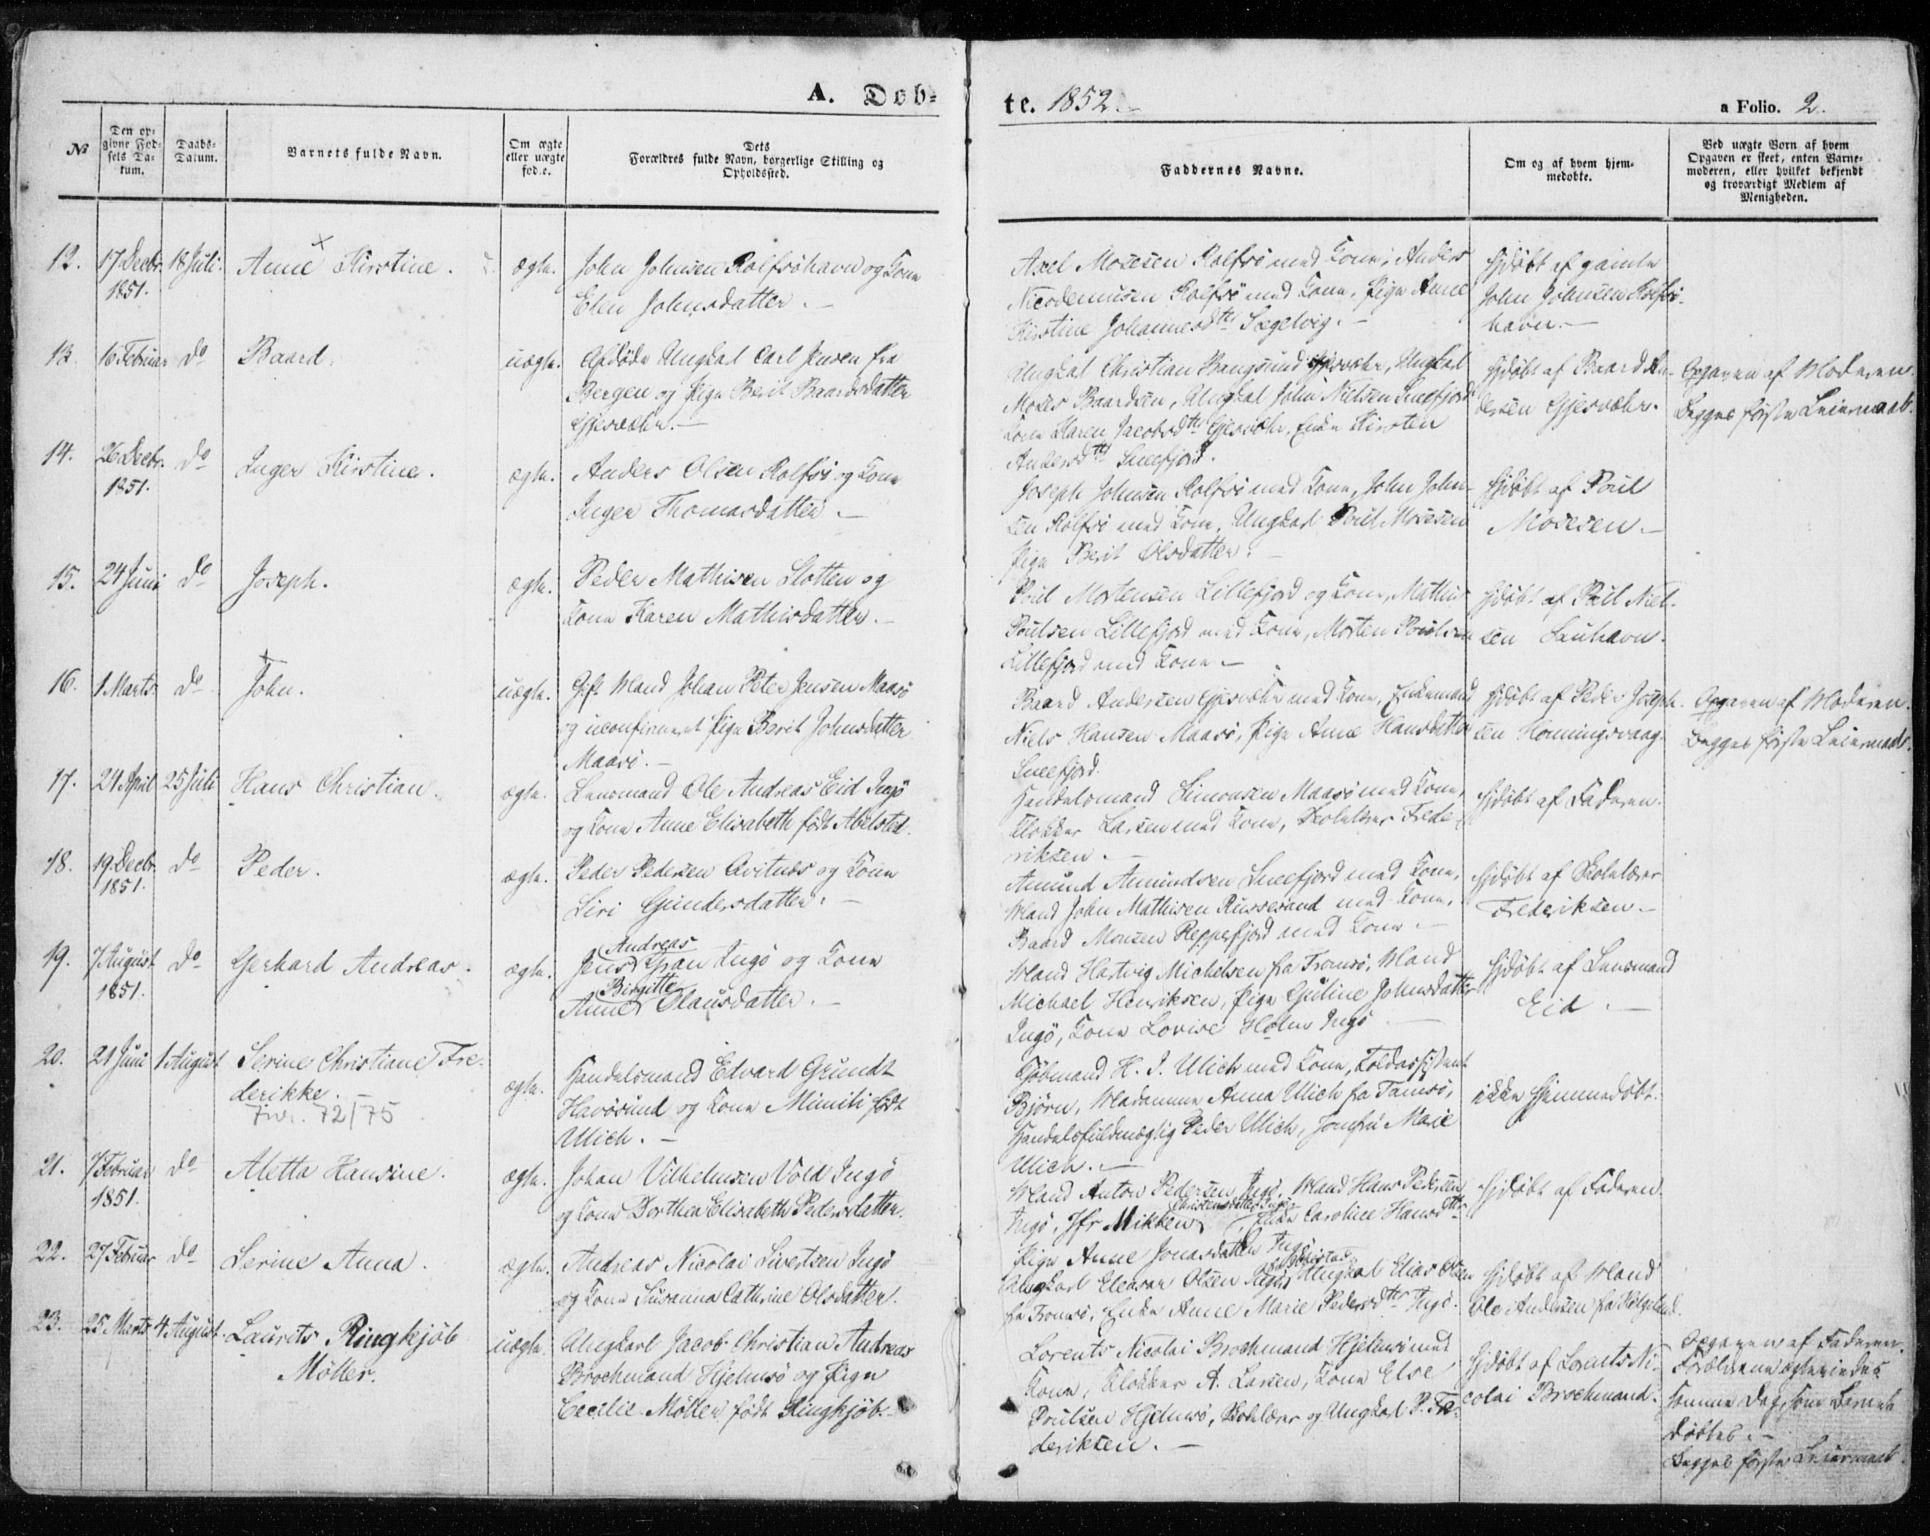 A. Døb-
te. 1852.
a Folio. 2.
No
Den op-
givne Fød-
sels Da-
tum.
Daabs-
Datum.
Barnets fulde Navn.
Om ægte
eller uægte
fød.e.
Dets
Forældres fulde Navn, borgerlige Stilling og
Opholdssted.
Faddernes Navne.
Om og af hvem hjem-
medøbte.
Ved uægte Børn af hvem
Opgaven er skeet, enten Barne-
moderen, eller hvilket bekjendt
og troværdigt Medlem af
Menigheden.
12. 17 Decbr. 1851. 18 Juli. Anne Kirstine. ægte.
John Johnsen Rolfsøhavn og Kone
Elen Johnsdatter.
Axel Mosesen Rolfsø med Kone, Anders
Nicodemusen Rolfsø med Kone, Pige Anne
Kirstine Johannesdtr
Hjdøbt af gamle
John Johnsen Rolfsø-
havn.
13. 16 Februar do Baard. uægte.
Afdøde Ungkal Carl Jensen fra
Bergen og Pige Berit Baardsdatter
Gjesvehr.
Ungkal Christian Bangsund Gjesvehr, Ungkal
Moses Baardsen, Ungkal John Nielsen Sneefjord
Kone Karen Jacobsdtr Gjesvehr, Enke Kirsten
Andersdtr Sneefjord.
Hjdøbt af Baard An-
dersen Gjesvehr.
Opgaven af Moderen.
Begges første Leiermaal.
14. 26 Decbr. 1851. do Inger Kirstine. ægte.
Anders Olsen Rolfsø og Kone
Inger Thomasdatter.
Joseph Johnsen Rolfsø med Kone, John John-
sen Rolfsø med Kone, Ungkarl Poul Mosesen
Pige Berit Olsdatter.
Hjdøbt af Poul
Mosesen.
15. 24 Juni do Joseph. ægte.
Peder Mathisen Slotten og
Kone Karen Mathisdatter.
Poul Mortensen Lillefjord og Kone, Mathis
Poulsen Lillefjord med Kone, Morten Poulsen
Lillefjord med Kone.
Hjdøbt af Poul Niel-
sen
16. 1 Marts do John. uægte.
Gift Mand Johan Peter Jensen Maasø
og uconfirmeret Pige Berit Johnsdatter
Maasø.
Baard Andersen Gjesvehr med Kone, Enkemand
Niels Hansen Maasø, Pige Anne Hansdatter
Sneefjord.
Hjdøbt af Peder Joseph-
sen Honningsvaag.
Opgaven af Moderen.
Begges første Leiermaal.
17. 24 April 25 Juli Hans Christian. ægte.
Lensmand Ole Andreas Eid Ingø
og Kone Anne Elisabeth født Abelsted.
Handelsmand Simonsen Maasø med Kone,
Klokker Larsen med Kone, Skolelærer Frede-
riksen.
Hjdøbt af Faderen.
18. 19 Decbr. 1851. do Peder. ægte.
Peder Pedersen Qvitnæs og Kone
Siri Gundersdatter.
Amund Amundsen Sneefjord med Kone,
Mand John Mathisen Russesand med Kone,
Baard Monsen Reppefjord med Kone.
Hjdøbt af Skolelærer
Frederiksen.
19. 7 August 1851. do Gerhard Andreas. ægte.
Jens Andreas Gran Ingø og Kone
Anne Birgitte Olausdatter.
Mand Hartvig Michelsen fra Tromsø, Mand
Michael Henriksen, Pige Guline Johnsdatter
Ingø, Kone Lovise Holm Ingø
Hjdøbt af Lensmand
Eid.
20. 21 Juni 1 August Serine Christiane Fre-
derikke. ægte.
72/75
Handelsmand Edvard Grundt
Havøsund og Kone Mimiti født
Ulich.
Kjøbmand H. J. Ulich med Kone, Toldassistent
Bjørn, Madamme Anna Ulich fra Tamsø,
Handelsfuldmægtig Peder Ulich, Jomfru Marie
Ulich.
ikke hjemmedøbt.
21. 7 Februar 1851. do Aletta Hansine. ægte.
Johan Vilhelmsen Vold Ingø
og Kone Dorthea Elisabeth Pedersdatter.
Mand Anton Pedersen Ingø, Mand Hans Pedersen
Ingø, Jfr Mikken Christensdatter Ingø, Enke Caroline Hansdtr
Pige Anne Jonasdatter Ingø
Hjdøbt af Faderen.
22. 27 Februar do Serine Anna. ægte.
Andreas Nicolai Sivertsen Ingø
og Kone Susanna Cathrine Olsdatter.
Ungkarl Eleasar Olsen Ingø, Ungkal Elias Olsen
fra Tromsø, Enke Anne Marie Pedersdtr Ingø.
Hjdøbt af Mand
Ole Andersen fra Helgeland.
23. 25 Marts 4 August. Laurets Ringkjøb
Möller. uægte.
Ungkarl Jacob Christian Andreas
Brochmand Hjelmsø og Pige
Cecilie Möller født Ringkjøb.
Lorents Nicolai Brochmand Hjelmsø med
Kone, Klokker A. Larsen, Kone Else
Poulsen Hjelmsø, Skolelærer og Ungkal P. Fre-
deriksen.
Hjdøbt af Lorents Ni-
colai Brochmand.
Opgaven af Faderen.
Forældrene
samme Dag, som Barnet
døbtes.
Begges første Leiermaal.